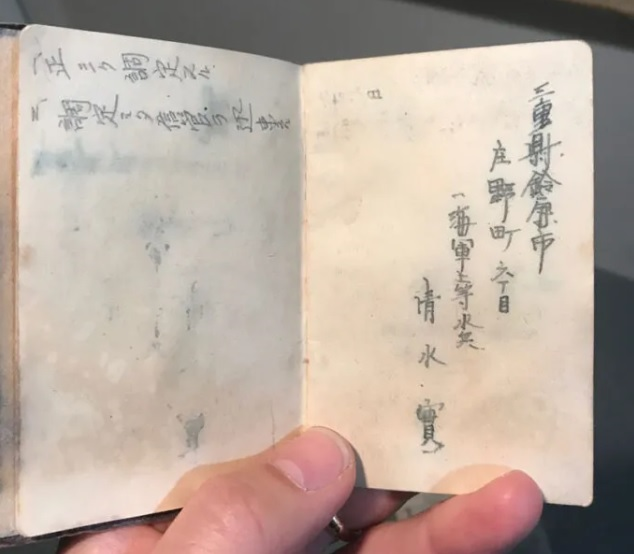 三重縣鈴鹿市
庄野町 六丁目
海軍上等水兵
清水 實
日
正ミリ調定スル
調定ミリ信管ヲ